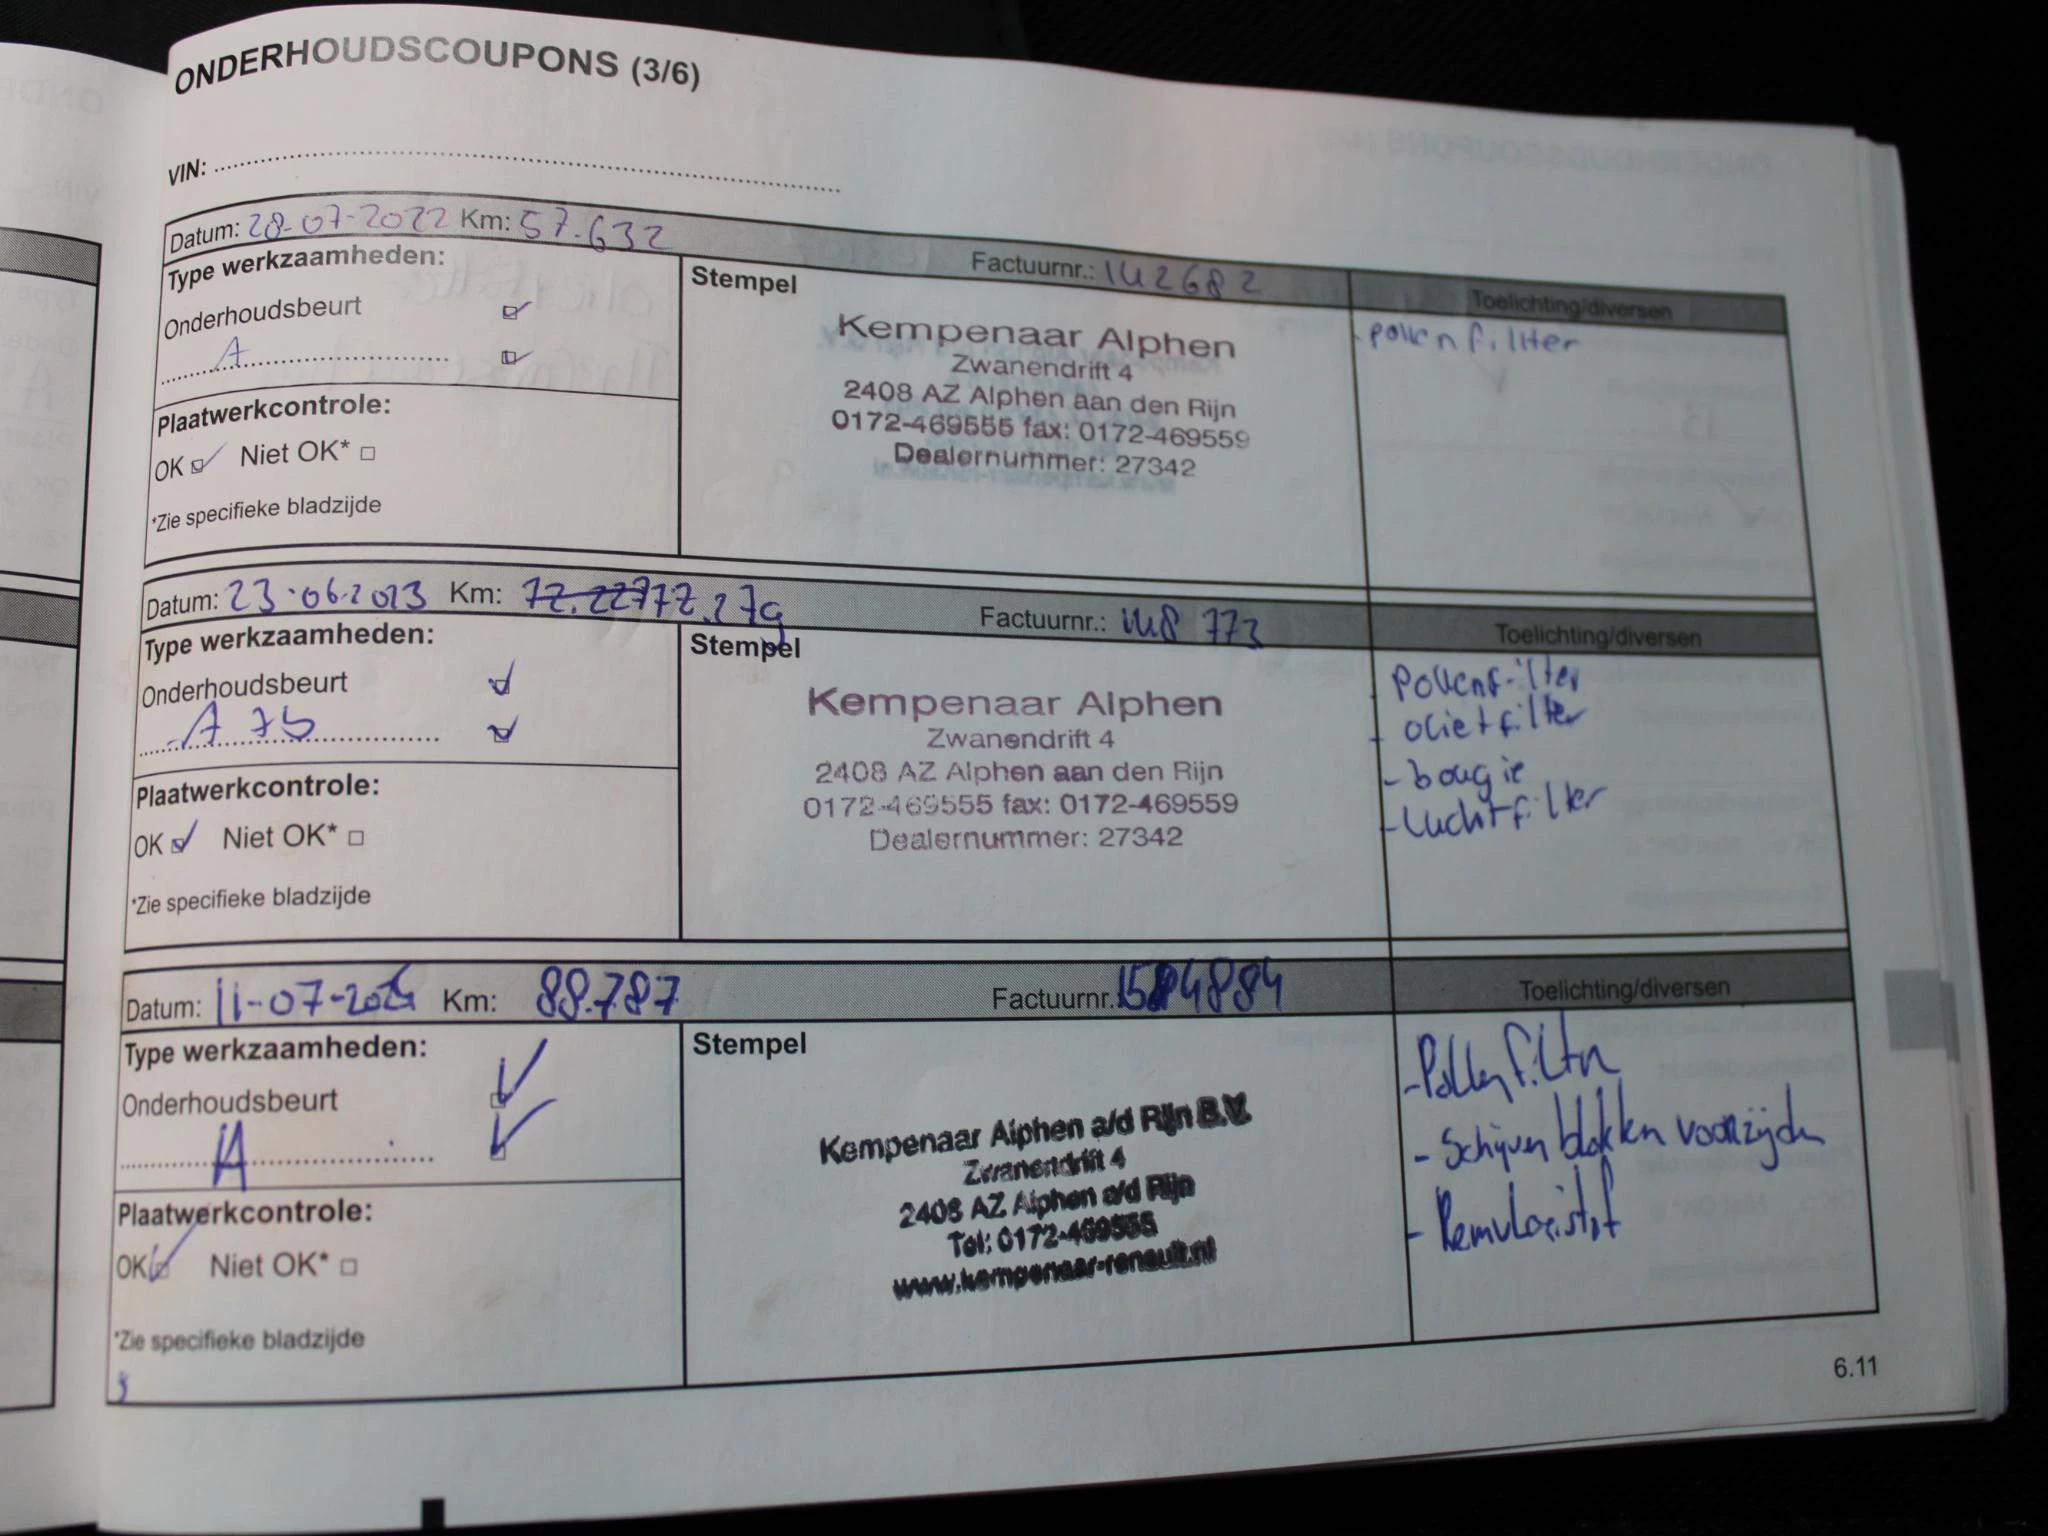 ONDERHOUDSCOUPONS (3/6)
VIN:
Datum: 28-07-2022 Km: 57.632 Factuurnr.: 142682 Toelichting/diversen
Type werkzaamheden:
Stempel
Onderhoudsbeurt
A
Plaatwerkcontrole:
OK Niet OK*
*Zie specifieke bladzijde
Kempenaar Alphen
Zwanendrift 4
2408 AZ Alphen aan den Rijn
0172-469555 fax: 0172-469559
Dealernummer: 27342
- pollenfillter
Datum: 23-06-2023 Km: 72.279 Factuurnr.: 148773 Toelichting/diversen
Type werkzaamheden:
Stempel
Onderhoudsbeurt
A
Plaatwerkcontrole:
OK Niet OK*
*Zie specifieke bladzijde
Kempenaar Alphen
Zwanendrift 4
2408 AZ Alphen aan den Rijn
0172-469555 fax: 0172-469559
Dealernummer: 27342
- Pollenfilter
- olie+filter
- bougie
- Luchtfilter
Datum: 11-07-2024 Km: 88.787 Factuurnr.: Toelichting/diversen
Type werkzaamheden:
Stempel
Onderhoudsbeurt
A
Plaatwerkcontrole:
OK Niet OK*
*Zie specifieke bladzijde
Kempenaar Alphen a/d Rijn B.V.
Zwanendrift 4
2408 AZ Alphen a/d Rijn
Tel: 0172-469555
www.kempenaar-renault.nl
- Pollenfilter
- Schijven blokken voorzijde
- Remvloeistof
6.11